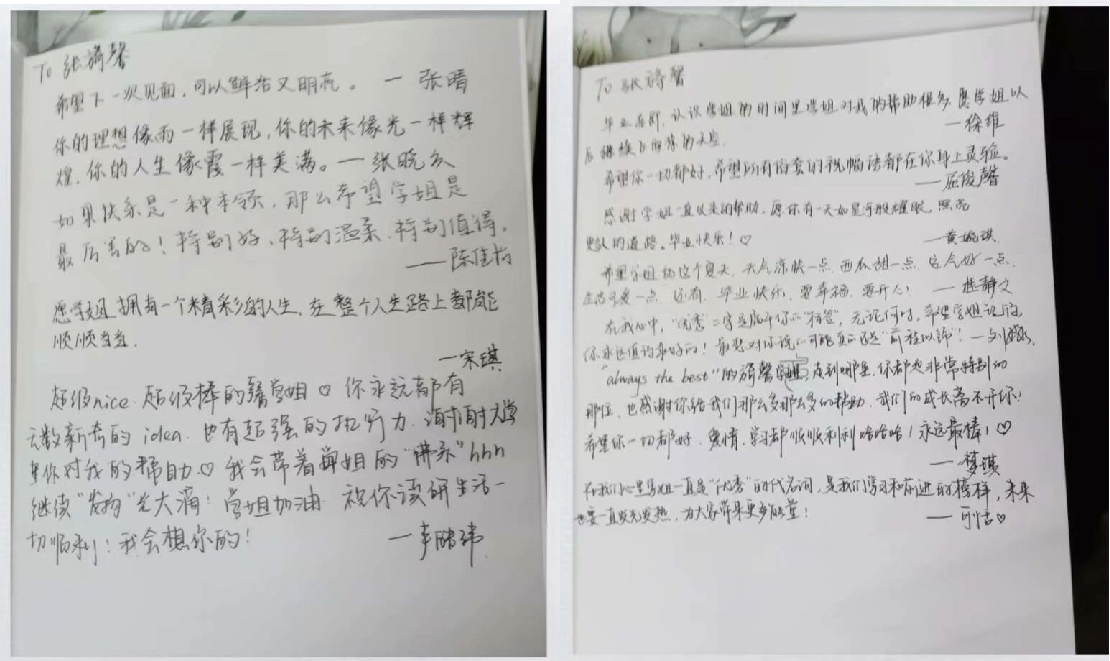 To 张漪馨
希望下一次见面，可以鲜活又明亮。 — 张晴
你的理想像雨一样展现，你的未来像光一样辉
煌，你的人生像霞一样美满。— 张晓
如果快乐是一种本领，那么希望学姐是
最厉害的！特别好、特别温柔、特别值得。
——陈佳
愿学姐拥有一个精彩的人生，在整个人生路上都能
顺顺当当.
—宋琪
超级nice、超级棒的馨学姐♡ 你永远都有
无数新奇的 idea. 也有超强的执行力、谢谢学
姐你对我的帮助♡ 我会带着学姐的"佛系"hhh
继续"发扬"光大滴！学姐加油 祝你读研生活一
切顺利！我会想你的！
To 张漪馨
毕业喜即，认识学姐的时间里学姐对我的帮助很多 愿学姐以
后继续
—徐维
希望你一切都好，希望所有俗套的祝福语都在你身上灵验。
感谢学姐一直以来的帮助，愿你有一天如星宇般耀眼，照亮
更 的道路，毕业快乐！♡ —黄婉琪
希望学姐的这个夏天，天气凉快一点 西瓜甜一点 运气好一点
生活可爱一点 还有，毕业快乐，要幸福，要开心！
在我心中，"优秀"二字是 你的标签"，无论何时，希望学姐记得
你永远值得最好的！最想对你说 "前程似锦"！
"always the best"的漪馨学姐，走到哪里，你都是非常特别的
那位，也感谢你给我们那么多那么多的帮助，我们的成长离不开你！
希望你一切都好，爱情、学习都顺顺利利哈哈哈！永远最棒！♡
在我们心里学姐一直是"优秀"的代名词，是我们学习和前进的榜样，未来
也要一直发光发热，为大家带来更多能量！
— 可怡♡